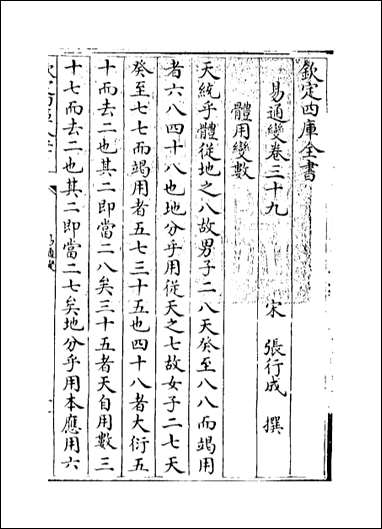 欽定四庫全書
易通變卷三十九
宋 張行成 撰
體用變數
天統乎體從地之八故男子二八天癸至八八而竭用
者六八四十八也地分乎用從天之七故女子二七天
癸至七七而竭用者五七三十五也四十八者大衍五
十而去二也其二即當二八矣三十五者天自用數三
十七而去二也其二即當二七矣地分乎用本應用六